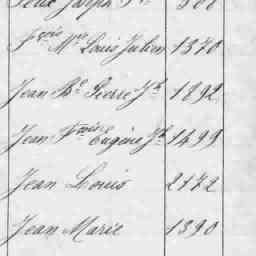 José Joseph Fs 508
Fçois Mie Louis Julien 1370
Jean Bte Pierre Jh 1892
Jean Fçois Eugène Jh 1499
Jean Louis 2172
Jean Marie 1390